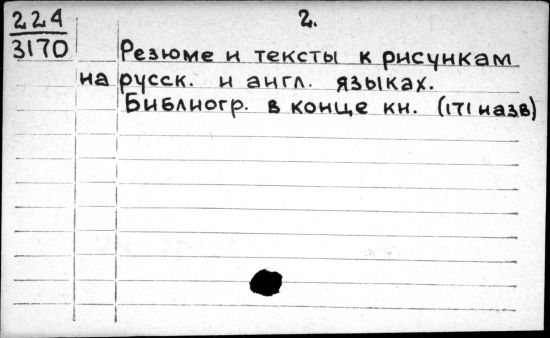 224
3170
2.
Резюме и тексты к рисункам
на русск. и англ. языках.
Библиогр. в конце кн. (171 назв)